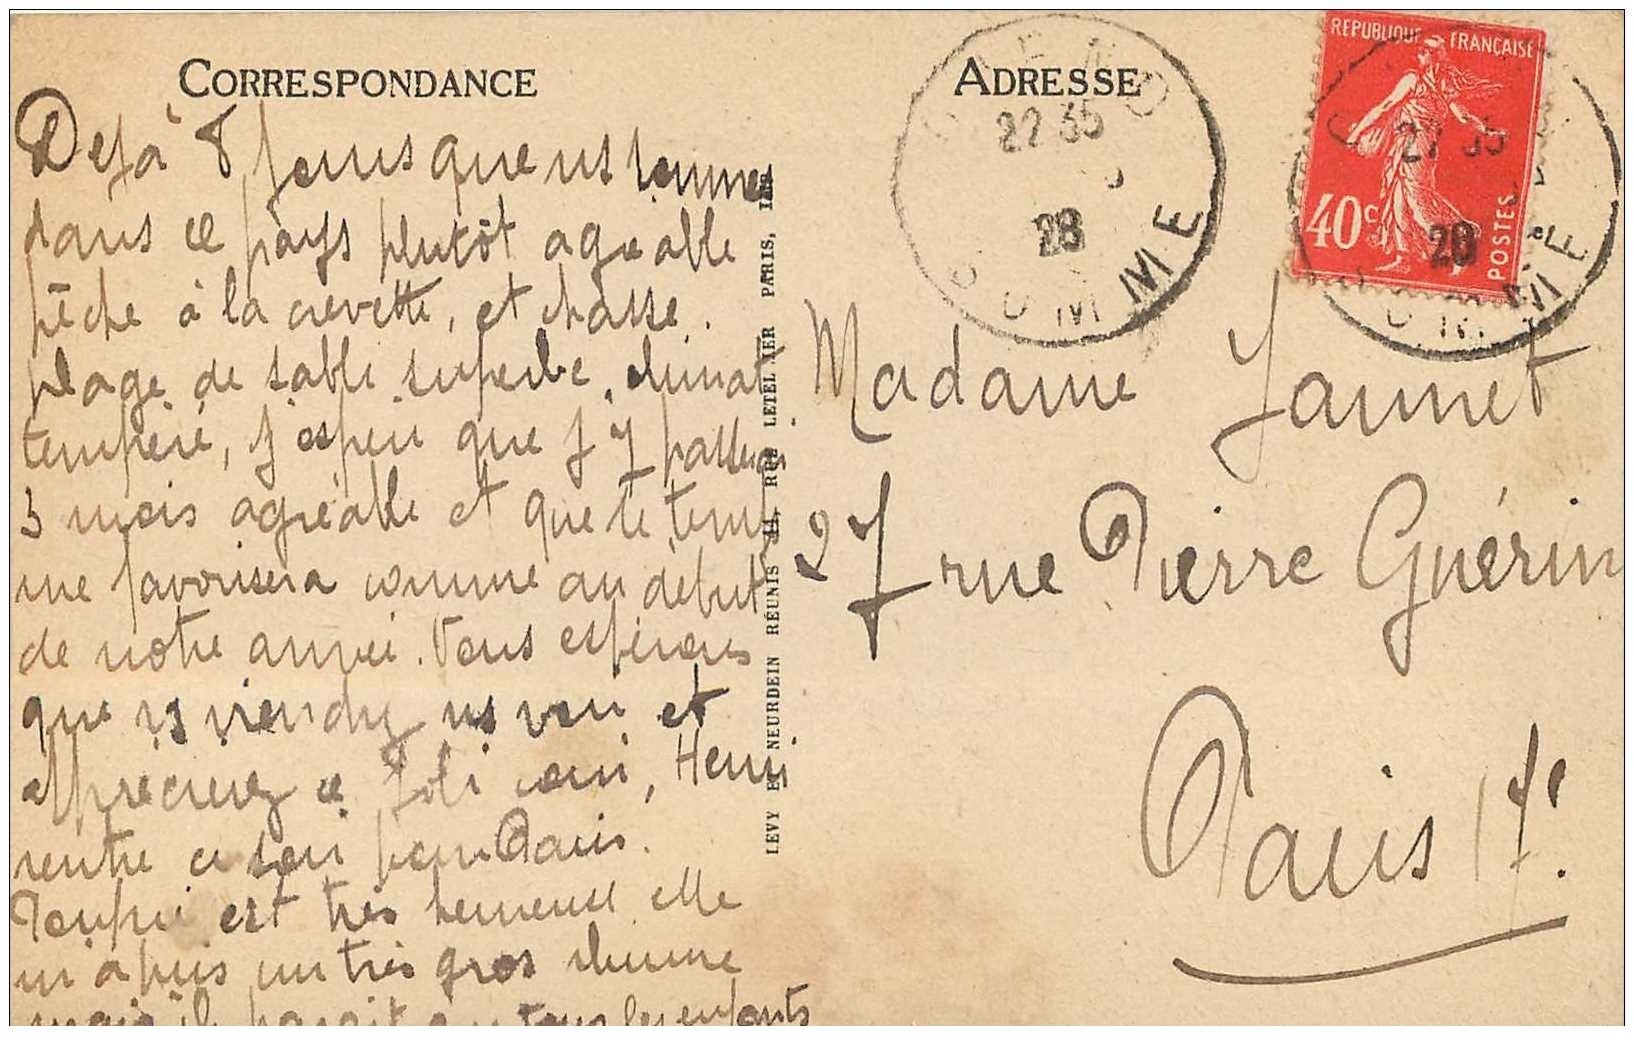 CORRESPONDANCE
Déjà 8 jours que ns sommes
dans ce pays plutôt agréable
pêche à la crevette, et chasse.
plage de sable superbe, climat
tempéré, j'espère que j'y passerai
3 mois agréable et que le temps
me favorisera comme au début
de notre arrivée. Nous espérons
que vs viendrez ns voir et
apprécierez ce joli coin, Henri
rentre ce soir pour Paris.
est très heureuse elle
m'a pris un très gros rhume
mais il paraît que tous les enfants
LEVY ET NEURDEIN RÉUNIS 44, RUE LETELLIER PARIS, IMP.
ADRESSE
22 35
28
SOMME
REPUBLIQUE FRANÇAISE
40c
POSTES
22 35
28
SOMME
Madame Jaunet
27 rue Pierre Guérin
Paris 17e.